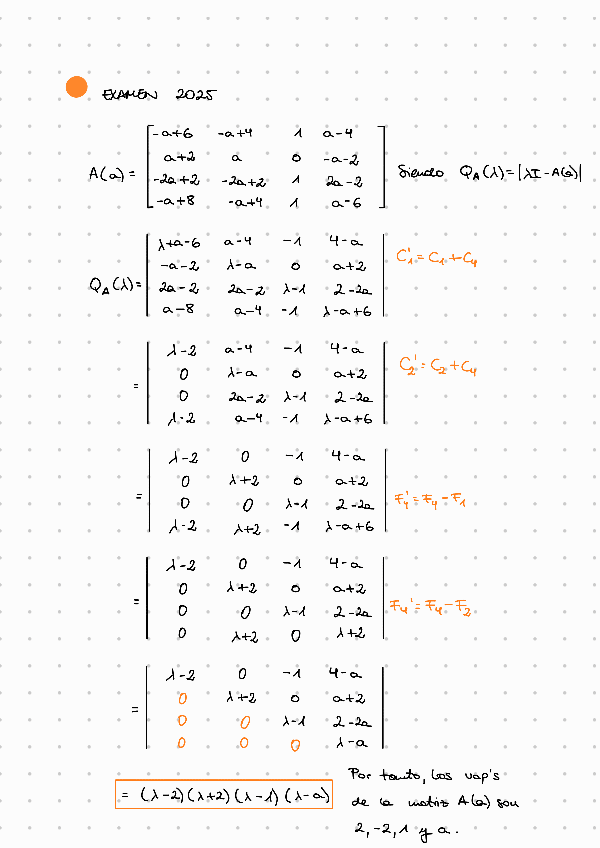 EXAMEN 2025
A(a) = [ -a+6 -a+4 1 a-4
a+2 a 0 -a-2
-2a+2 -2a+2 1 2a-2
-a+8 -a+4 1 a-6 ] Siendo Q_A(λ) = |λI - A(a)|
Q_A(λ) = | λ+a-6 a-4 -1 4-a |
| -a-2 λ-a 0 a+2 | C₁' = C₁ + C₄
| 2a-2 2a-2 λ-1 2-2a |
| a-8 a-4 -1 λ-a+6 |
= | λ-2 a-4 -1 4-a |
| 0 λ-a 0 a+2 | C₂' = C₂ + C₄
| 0 2a-2 λ-1 2-2a |
| λ-2 a-4 -1 λ-a+6 |
= | λ-2 0 -1 4-a |
| 0 λ+2 0 a+2 |
| 0 0 λ-1 2-2a | F₄' = F₄ - F₁
| λ-2 λ+2 -1 λ-a+6 |
= | λ-2 0 -1 4-a |
| 0 λ+2 0 a+2 |
| 0 0 λ-1 2-2a | F₄' = F₄ - F₂
| 0 λ+2 0 λ+2 |
= | λ-2 0 -1 4-a |
| 0 λ+2 0 a+2 |
| 0 0 λ-1 2-2a |
| 0 0 0 λ-a |
= (λ-2)(λ+2)(λ-1)(λ-a)
Por tanto, los vap's
de la matriz A(a) son
2, -2, 1 y a.